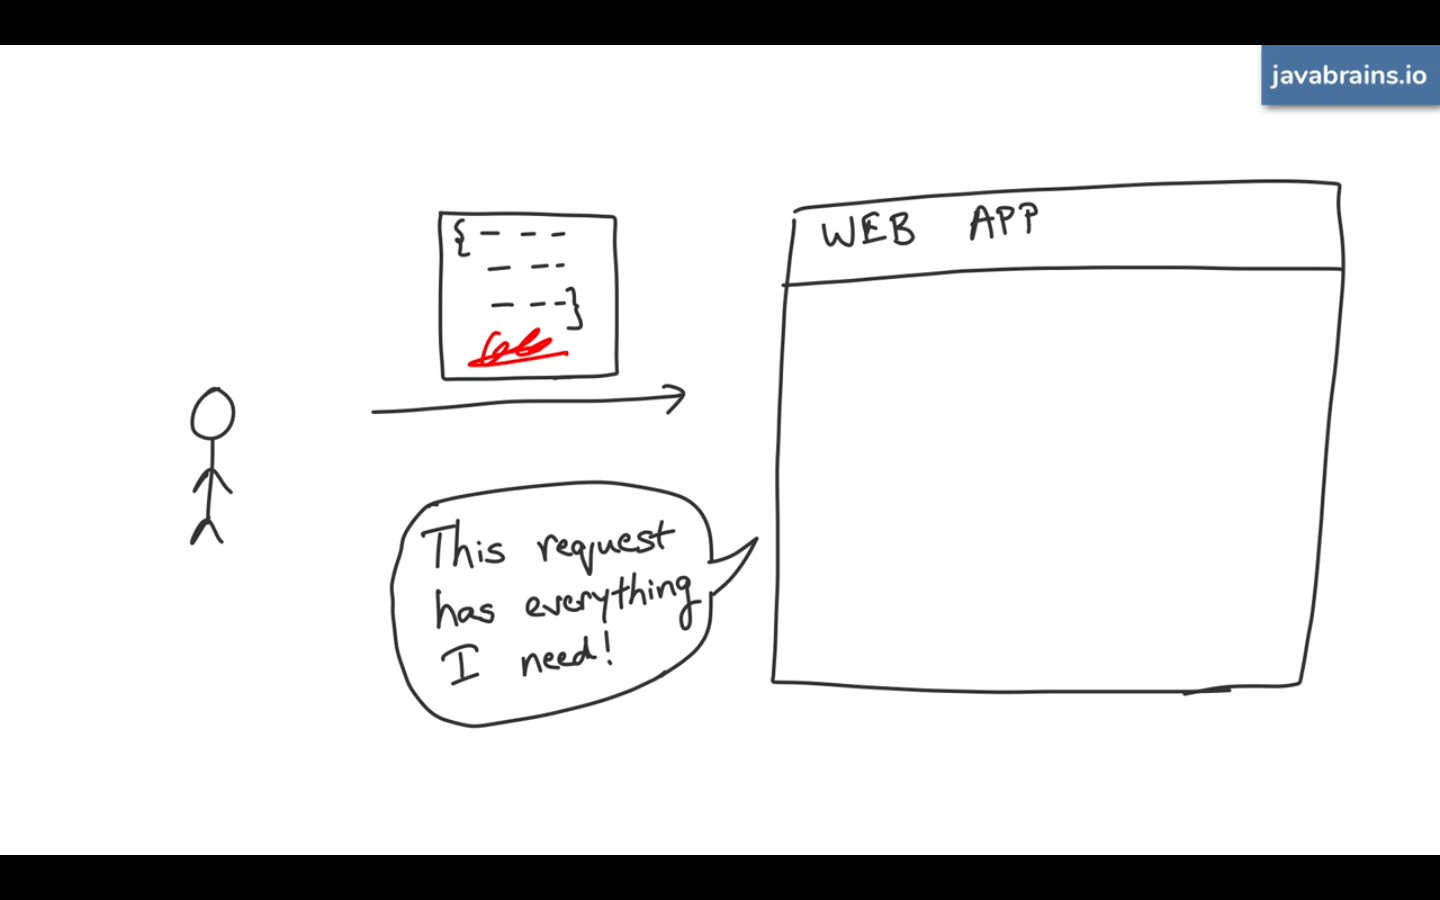 javabrains.io
WEB APP
{ - - -
- - -
- - - }
This request
has everything
I need!